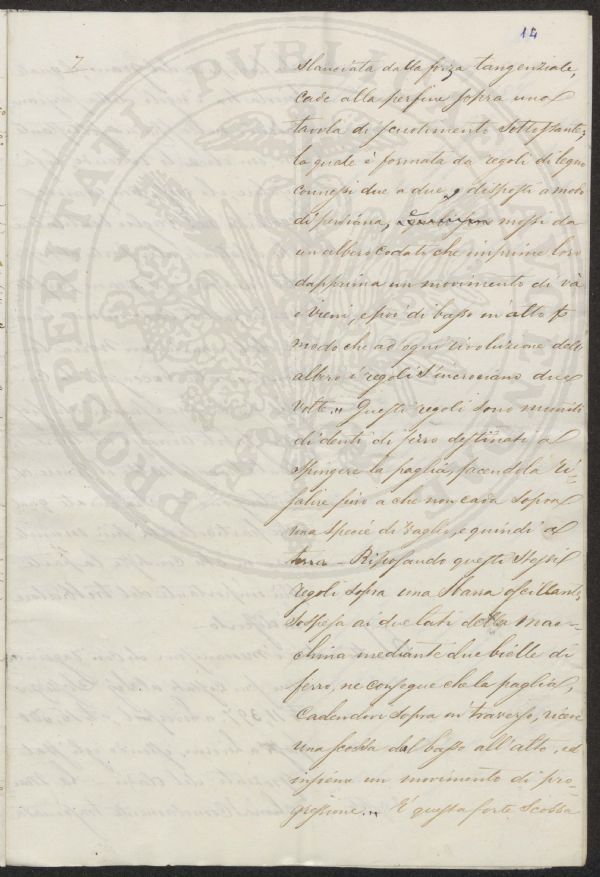 14
7
slanciata dalla forza tangenziale,
cade alla perfine sopra una
tavola di scuotimento sottostante;
la quale è formata da regoli di legno
connessi due a due, e disposti a modo
di persiana, mossi da
un albero codati che imprime loro
dapprima un movimento di và
e vieni, e poi di basso in alto
modo che ad ogni rivoluzione dell'
albero i regoli s'incrociano due
volte.,, Questi regoli sono muniti
di denti di ferro destinati a
spingere la paglia, facendola ri-
salire fino a che non cada sopra
una specie di vaglio, e quindi a
terra - Riposando questi stessi
regoli sopra una sbarra oscillante,
sospesa ai due lati della mac-
china mediante due bielle di
ferro, ne consegue che la paglia,
cadendovi sopra in traverso, riceve
una scossa dal basso all'alto, ed
insieme un movimento di pro-
gressione.,, E questa forte scossa
PROSPERITATI PVBLICAE